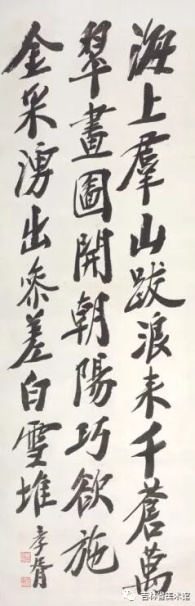 海上羣山跋浪来千蒼萬
翠畫圖開朝陽巧欲施
金采湧出叅差白雪堆
孝胥
吉林省美术馆